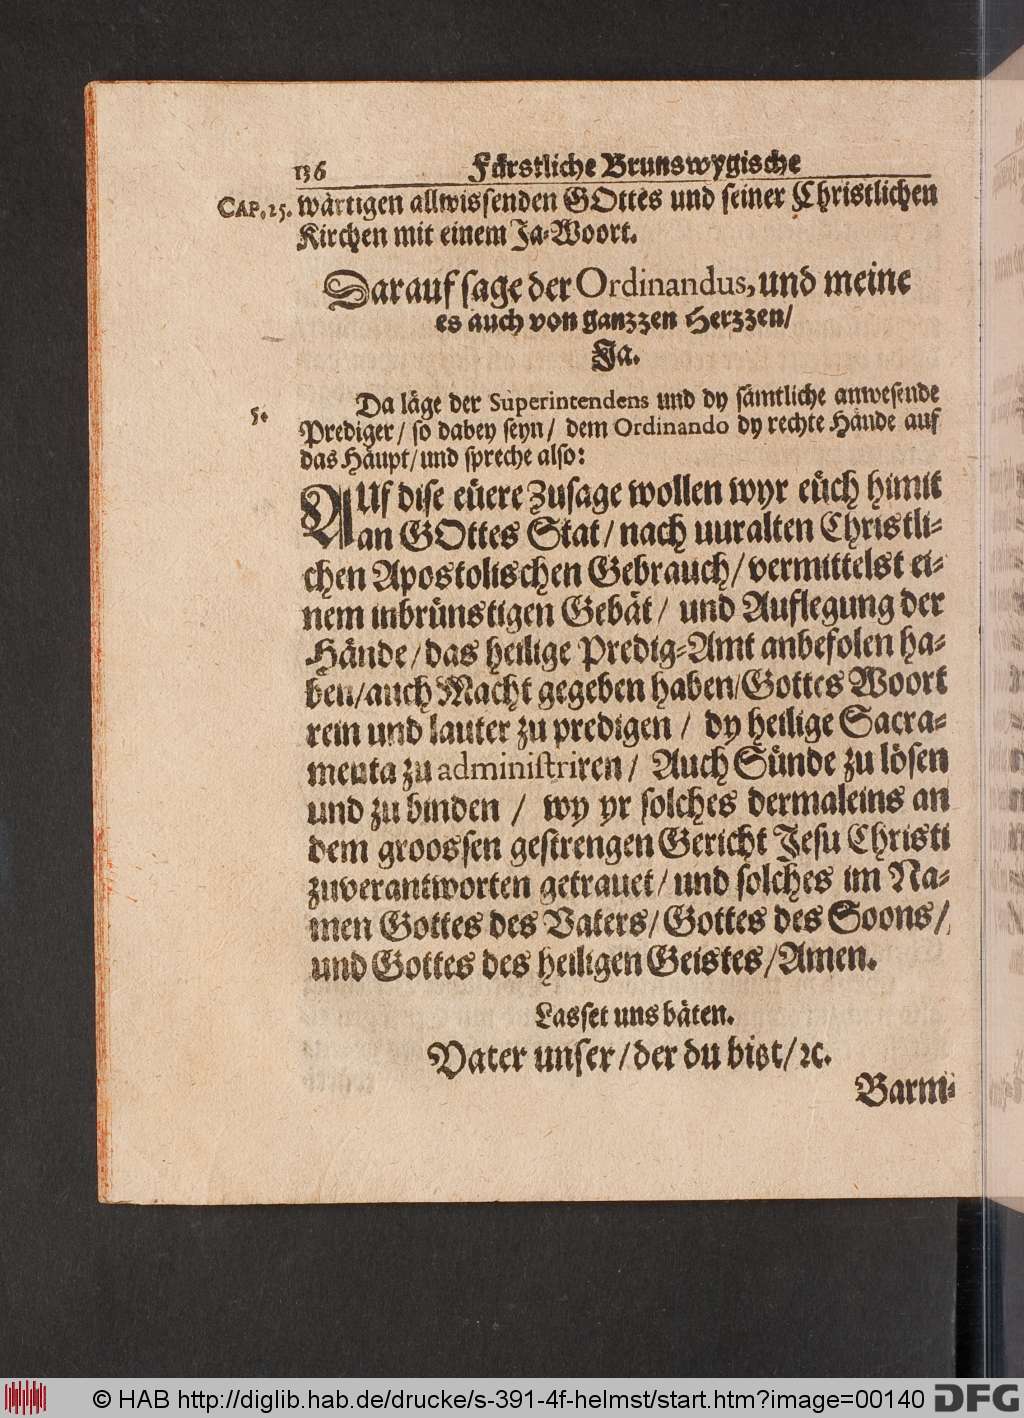 136 Fürstliche Brunswygische
CAP. 25. wärtigen allwissenden GOttes und seiner Christlichen
Kirchen mit einem Ja-Woort.
Darauf sage der Ordinandus, und meine
es auch von ganzzen Herzzen/
Ja.
5. Da läge der Superintendens und dy sämtliche anwesende
Prediger/ so dabey seyn/ dem Ordinando dy rechte Hände auf
das Häupt/ und spreche also:
AUf dise eüere Zusage wollen wyr eüch himit
an GOttes Stat/ nach uuralten Christli-
chen Apostolischen Gebrauch/ vermittelst ei-
nem inbrünstigen Gebät/ und Auflegung der
Hände/ das heilige Predig-Amt anbefolen ha-
ben/ auch Macht gegeben haben/ Gottes Woort
rein und lauter zu predigen/ dy heilige Sacra-
menta zu administriren/ Auch Sünde zu lösen
und zu binden/ wy yr solches dermaleins an
dem groossen gestrengen Gericht Jesu Christi
zuverantworten getrauet/ und solches im Na-
men Gottes des Vaters/ Gottes des Soons/
und Gottes des heiligen Geistes/ Amen.
Lasset uns bäten.
Vater unser/ der du bist/ ꝛc.
Barm-
© HAB http://diglib.hab.de/drucke/s-391-4f-helmst/start.htm?image=00140 DFG